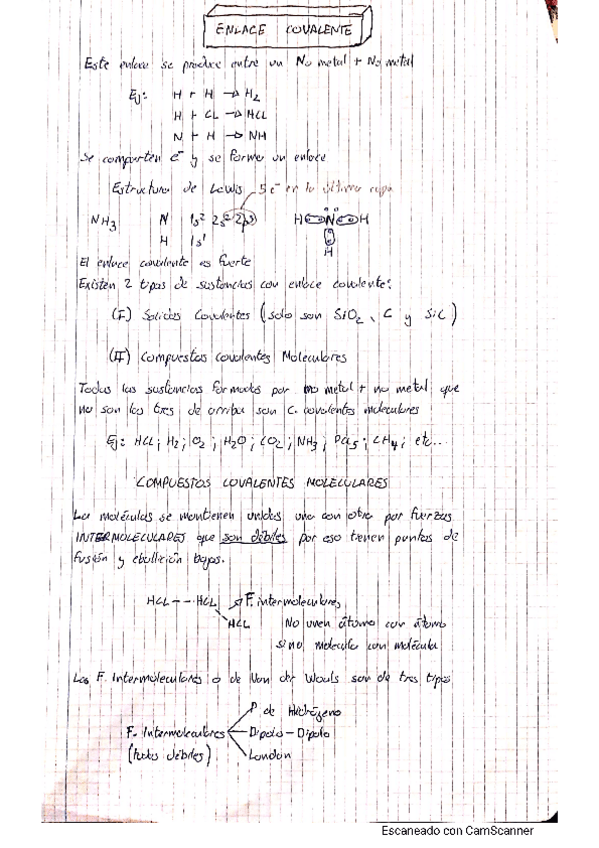 ENLACE COVALENTE
Este enlace se produce entre un No metal + No metal
Ej: H + H → H2
H + CL → HCL
N + H → NH
Se comparten e- y se forma un enlace
Estructura de Lewis 5e- en la última capa
NH3 N 1s2 2s2 2p3 H N H
H 1s1
H
El enlace covalente es fuerte
Existen 2 tipos de sustancias con enlace covalente:
(I) Solidos Covalentes (solo son SiO2, C y SiC)
(II) Compuestos covalentes Moleculares
Todas las sustancias formadas por no metal + no metal que
no son los tres de arriba son C. covalentes moleculares
Ej: HCL; H2; O2; H2O; CO2; NH3; PCl5; CH4; etc...
COMPUESTOS COVALENTES MOLECULARES
Las moléculas se mantienen unidas una con otra por fuerzas
INTERMOLECULARES que son débiles por eso tienen puntos de
fusión y ebullición bajos.
HCL -- HCL → F. intermoleculares
HCL No unen átomo con átomo
sino molecula con molécula
Las F. Intermoleculares o de Van der Waals son de tres tipos
P de Hidrógeno
F. Intermoleculares Dipolo - Dipolo
(todas débiles) London
Escaneado con CamScanner